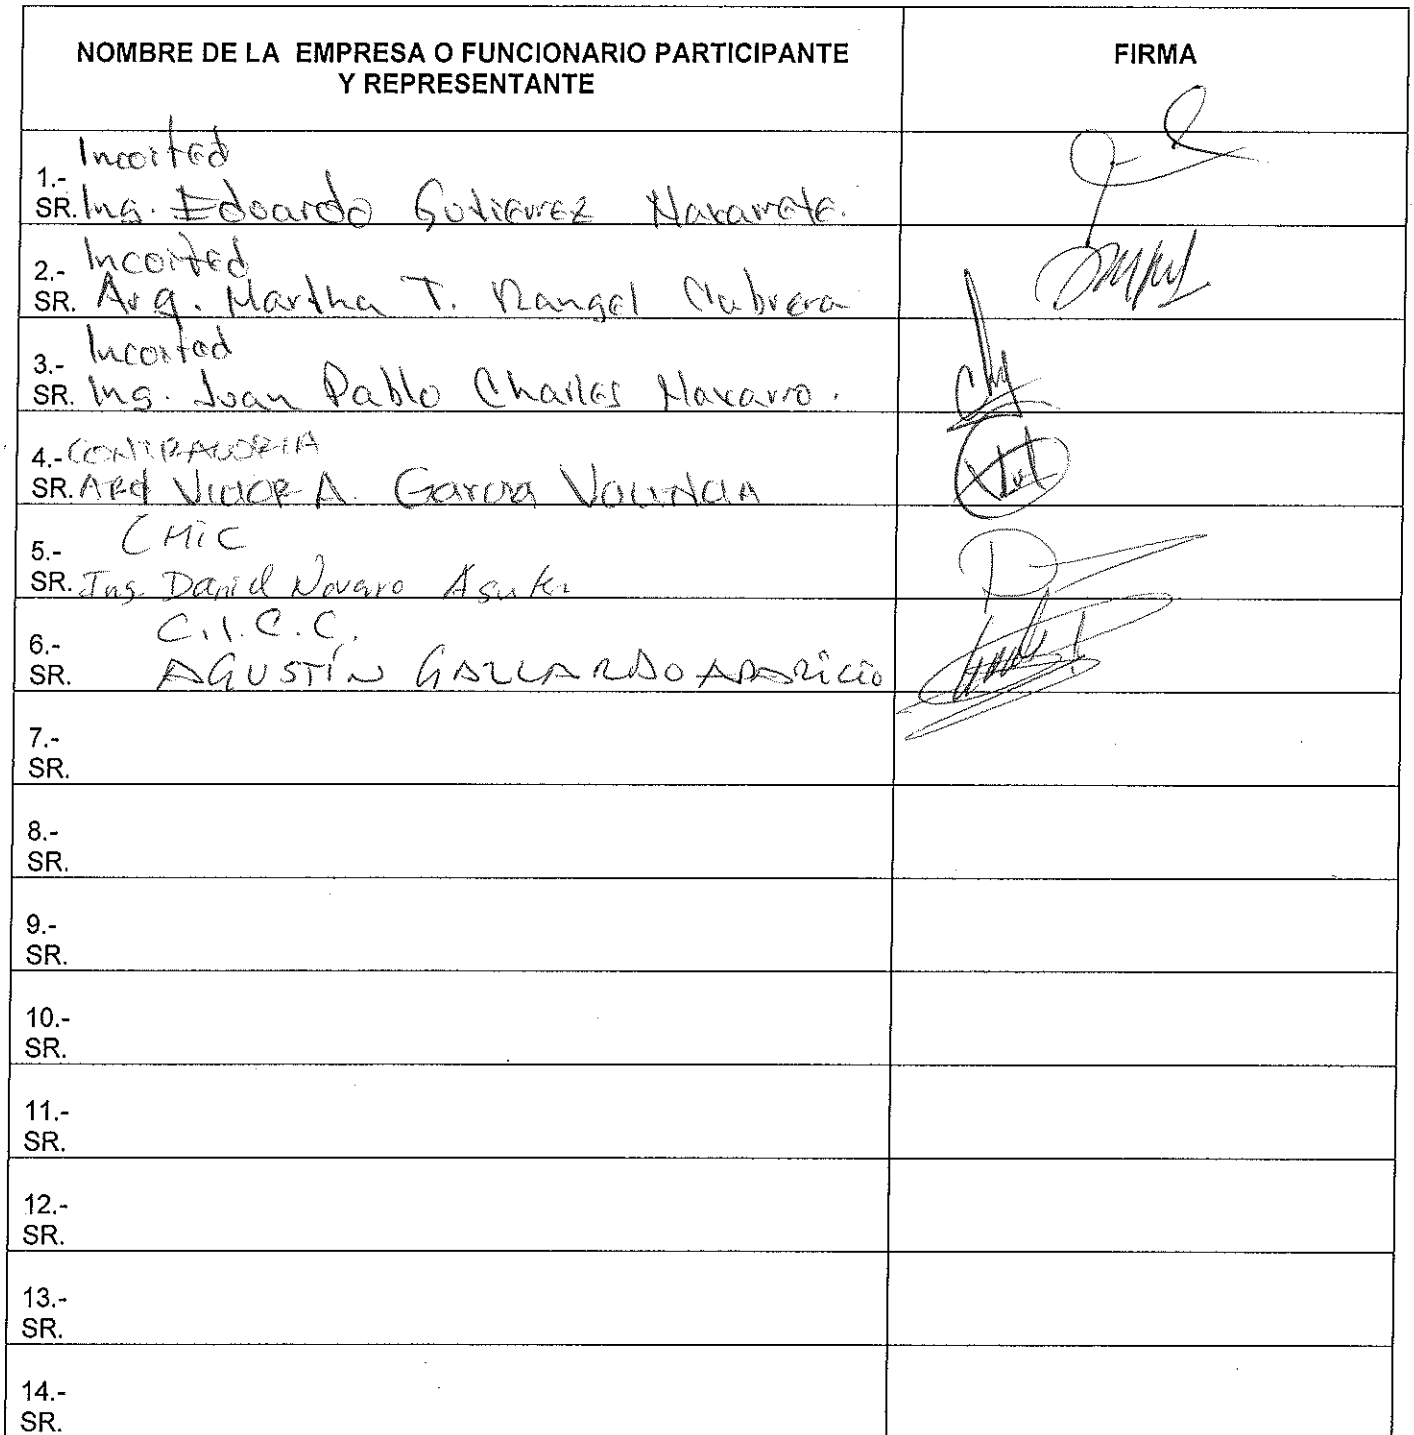 NOMBRE DE LA EMPRESA O FUNCIONARIO PARTICIPANTE
Y REPRESENTANTE
FIRMA
Incoited
1.-
SR. Ing. Edoardo Gutierrez Navarrete.
Incoited
2.-
SR. Arq. Martha T. Rangel Cabrera
Incoited
3.-
SR. Ing. Juan Pablo Charles Navarro.
4.- CONTRALORIA
SR. ARQ VICTOR A. Garcia VALENCIA
CMIC
5.-
SR. Ing. Daniel Navarro
C.I.C.C.
6.-
SR. AGUSTÍN GALLARDO APARICIO
7.-
SR.
8.-
SR.
9.-
SR.
10.-
SR.
11.-
SR.
12.-
SR.
13.-
SR.
14.-
SR.